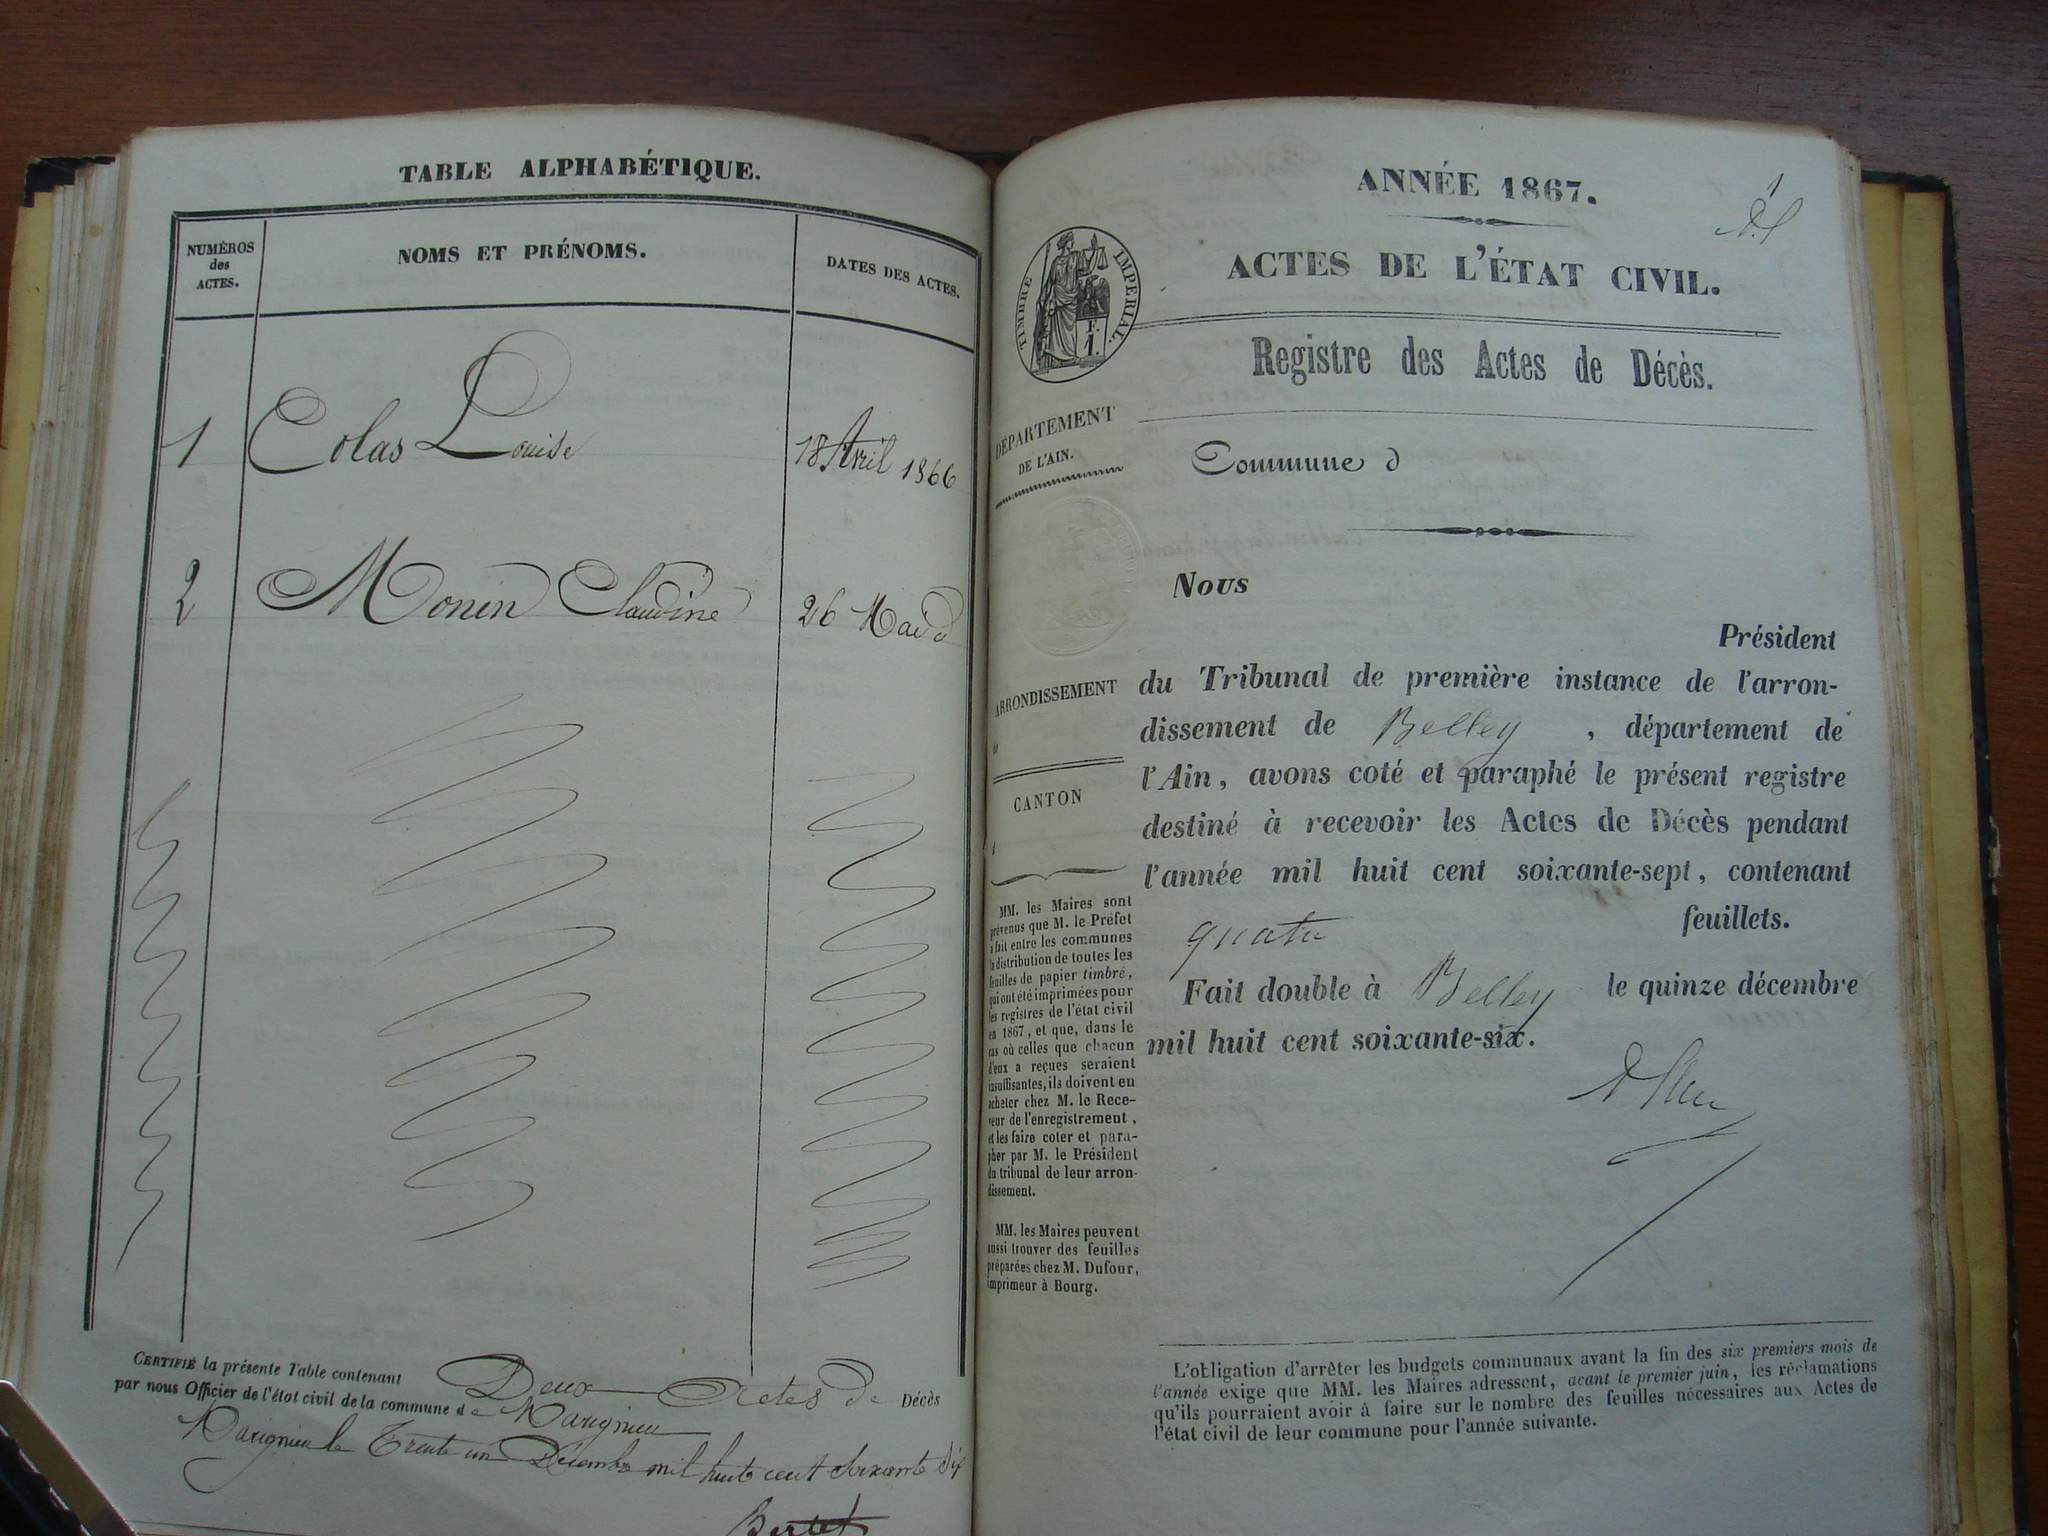 TABLE ALPHABÉTIQUE.
NUMÉROS
des
ACTES.
NOMS ET PRÉNOMS.
DATES DES ACTES.
1 Colas Louise 18 Avril 1866
2 Monin Claudine 26 Mai d
CERTIFIÉ la présente Table contenant Deux Actes de Décès
par nous Officier de l'état civil de la commune de Marignieu
Marignieu le Trente un Décembre mil huit cent soixante six
Bertet
1
ANNÉE 1867.
ACTES DE L'ÉTAT CIVIL.
TIMBRE IMPERIAL.
F.
1.
Registre des Actes de Décès.
DÉPARTEMENT
DE L'AIN.
Commune d
Nous
Président
du Tribunal de première instance de l'arron-
dissement de Belley, département de
l'Ain, avons coté et paraphé le présent registre
destiné à recevoir les Actes de Décès pendant
l'année mil huit cent soixante-sept, contenant
quatre feuillets.
Fait double à Belley le quinze décembre
mil huit cent soixante-six.
ARRONDISSEMENT
CANTON
MM. les Maires sont
prévenus que M. le Préfet
a fait entre les communes
la distribution de toutes les
feuilles de papier timbré,
qui ont été imprimées pour
les registres de l'état civil
en 1867, et que, dans le
cas où celles que chacun
d'eux a reçues seraient
insuffisantes, ils doivent en
acheter chez M. le Rece-
veur de l'enregistrement,
et les faire coter et para-
pher par M. le Président
du tribunal de leur arron-
dissement.
MM. les Maires peuvent
aussi trouver des feuilles
préparées chez M. Dufour,
imprimeur à Bourg.
L'obligation d'arrêter les budgets communaux avant la fin des six premiers mois de
l'année exige que MM. les Maires adressent, avant le premier juin, les réclamations
qu'ils pourraient avoir à faire sur le nombre des feuilles nécessaires aux Actes de
l'état civil de leur commune pour l'année suivante.